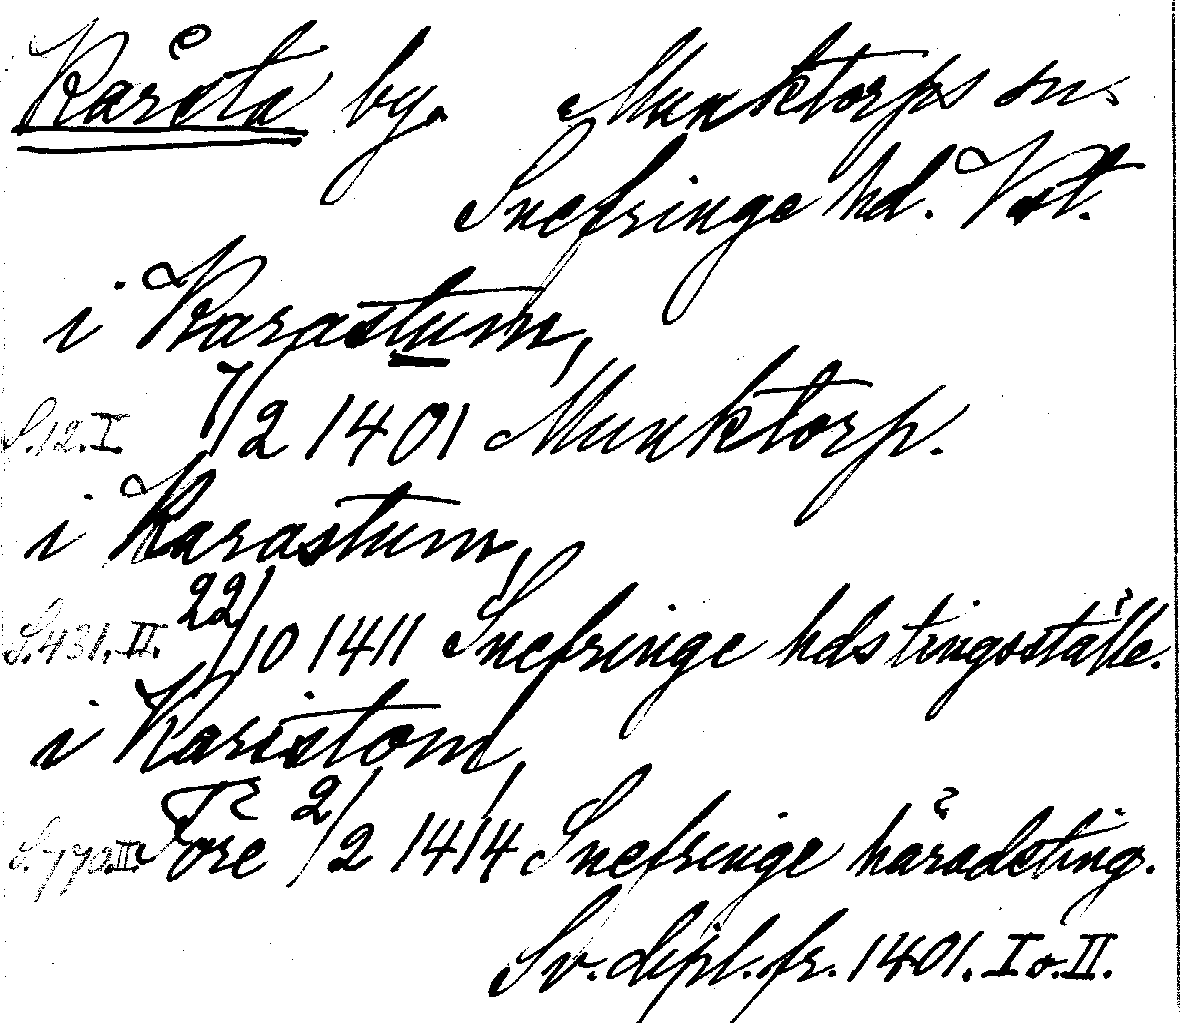 Kårsta by. Munktorps sn.
Snefringe hd. Vstl.
i Karastum,
S. 12. I. 7/2 1401 Munktorp.
i Karastum,
S. 431. II. 22/10 1411 Snefringe hds tingsställe.
i Karistom,
S. 770. II. Före 2/2 1414 Snefringe häradsting.
Sv. dipl. fr. 1401. I o. II.